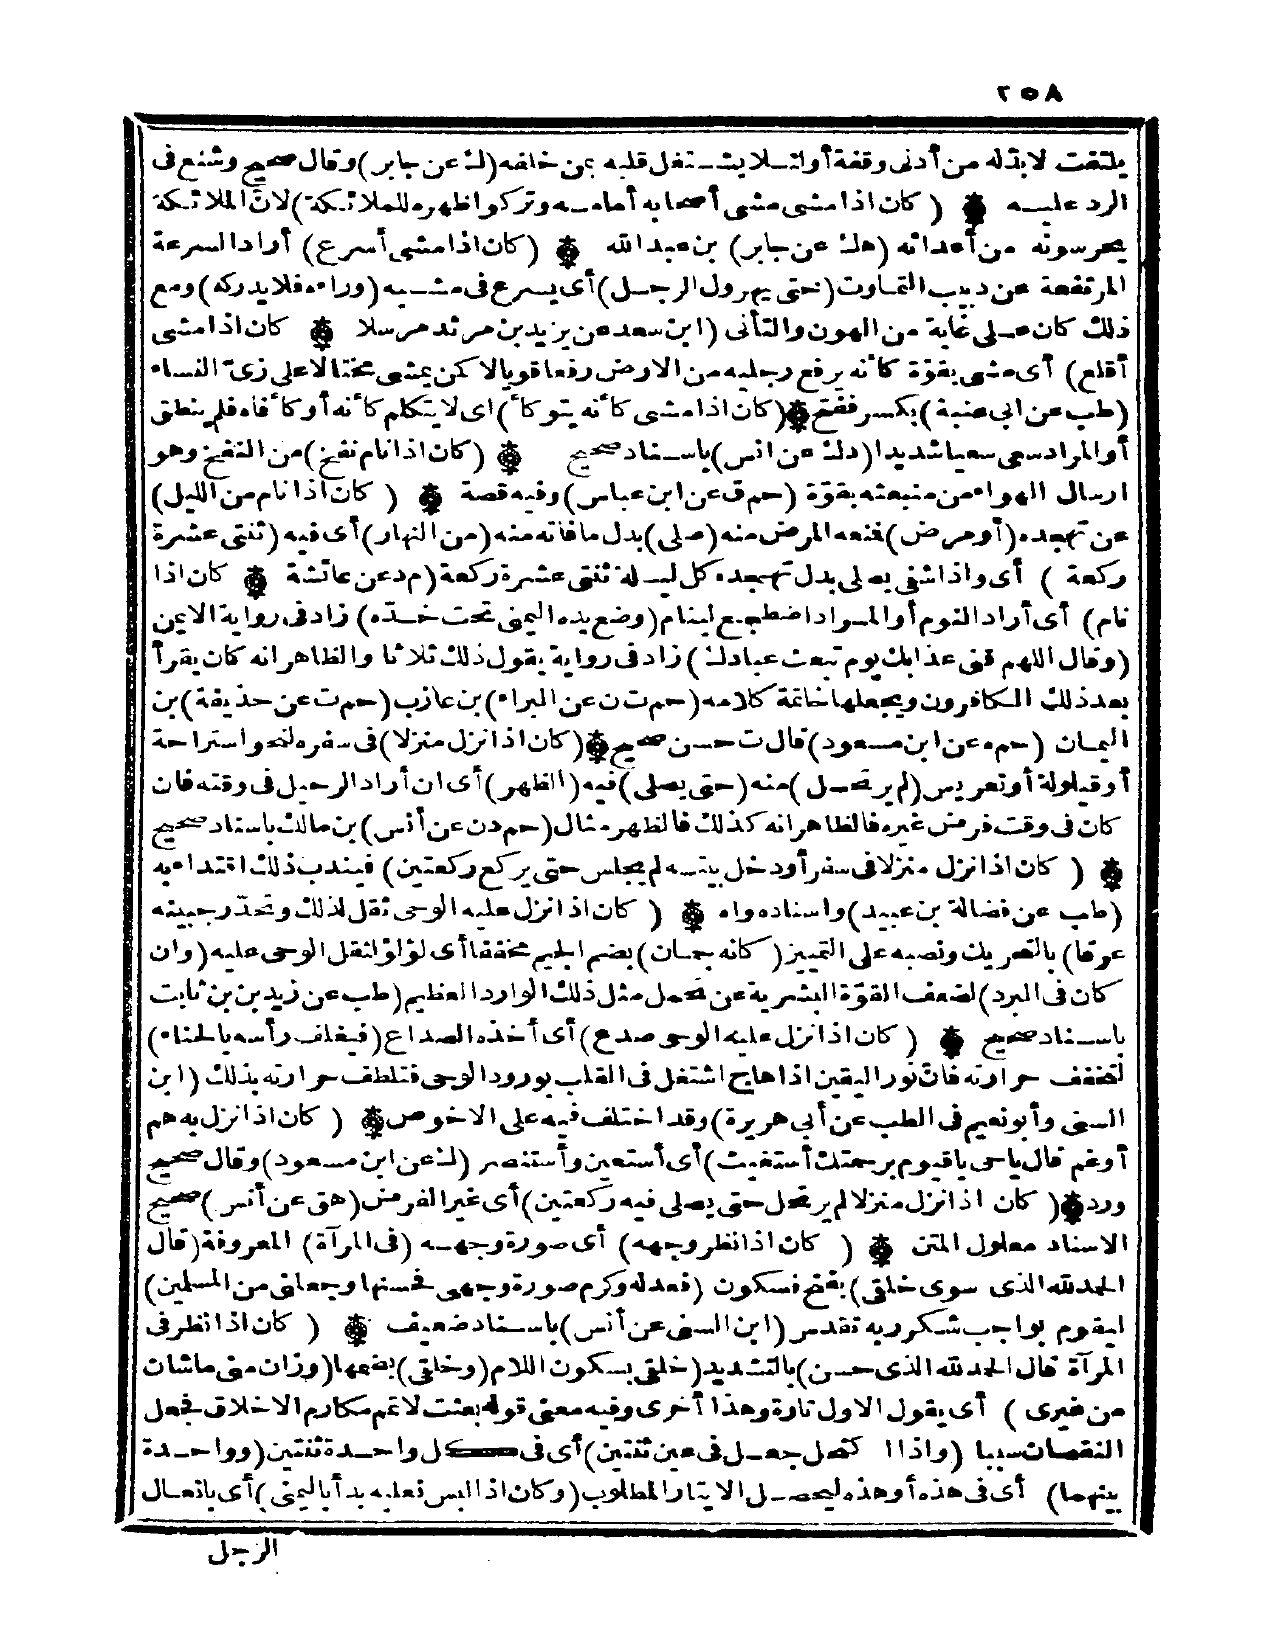 ٢٥٨
يلتفت لابدله من أدنى وقفة أولئلا يشتغل قلبه بمن خلفه (ك عن جابر) وقال صحيح وشنع فى
الرد عليه ۞ (كان اذا مشى مشى أصحابه أمامه وتركوا ظهره للملائكة) لانّ الملائكة
يحرسونه من أعدائه (هك عن جابر) بن عبد الله ۞ (كان اذا مشى أسرع) أراد السرعة
المرتفعة عن دبيب التماوت (حتى يهرول الرجل) أى يسرع فى مشيه (وراءه فلا يدركه) ومع
ذلك كان على غاية من الهون والتأنى (ابن سعد عن يزيد بن مرثد مرسلا ۞ كان اذا مشى
أقلع) أى مشى بقوّة كأنه يرفع رجليه من الارض رفعا قويا لا كن يمشى مختالا على زىّ النساء
(طب عن ابى عنبة) بكسر ففتح ۞ (كان اذا مشى كأنه يتوكأ) اى لا يتكلم كأنه أوكأ فاه فلم ينطق
أو المراد سعى سعيا شديدا (دك عن انس) باسناد صحيح ۞ (كان اذا نام نفخ) من النفخ وهو
ارسال الهواء من منبعثه بقوّة (حم ق عن ابن عباس) وفيه قصة ۞ (كان اذا نام من الليل)
عن تهجده (أو مرض) فمنعه المرض منه (صلى) بدل ما فاته منه (من النهار) أى فيه (ثنتى عشرة
ركعة) أى واذا شفى يصلى بدل تهجده كل ليلة ثنتى عشرة ركعة (م د عن عائشة ۞ كان اذا
نام) أى أراد النوم أو المراد اضطجع لينام (وضع يده اليمنى تحت خدّه) زاد فى رواية الايمن
(وقال اللهم قنى عذابك يوم تبعث عبادك) زاد فى رواية يقول ذلك ثلاثا والظاهر انه كان يقرأ
بعد ذلك الكافرون ويجعلها خاتمة كلامه (حم ت ن عن البراء) بن عازب (حم ت عن حذيفة) بن
اليمان (حم ه عن ابن مسعود) قال ت حسن صحيح ۞ (كان اذا نزل منزلا) فى سفره لنحو استراحة
أو قيلولة أو تعريس (لم يرتحل) منه (حتى يصلى) فيه (الظهر) أى ان أراد الرحيل فى وقته فان
كان فى وقت فرض غيره فالظاهر انه كذلك فالظهر مثال (حم د ن عن أنس) بن مالك باسناد صحيح
۞ (كان اذا نزل منزلا فى سفر أو دخل بيته لم يجلس حتى يركع ركعتين) فيندب ذلك اقتداء به
(طب عن فضالة بن عبيد) واسناده واه ۞ (كان اذا نزل عليه الوحى ثقل لذلك وتحدّر جبينه
عرقا) بالتحريك ونصبه على التمييز (كانه جمان) بضم الجيم مخففا أى لؤلؤ لثقل الوحى عليه (وان
كان فى البرد) لضعف القوّة البشرية عن تحمل مثل ذلك الوارد العظيم (طب عن زيد بن بن ثابت
باسناد صحيح ۞ (كان اذا نزل عليه الوحى صدع) أى أخذه الصداع (فيغلف رأسه بالحناء)
لتخفف حرارته فانّ نور اليقين اذا هاج اشتغل فى القلب بورود الوحى فتلطف حرارته بذلك (ابن
السنى وأبو نعيم فى الطب عن أبى هريرة) وقد اختلف فيه على الاخوص ۞ (كان اذا نزل به هم
أو غم قال يا حى يا قيوم برحمتك أستغيث) أى أستعين وأستنصر (ك عن ابن مسعود) وقال صحيح
ورد ۞ (كان اذا نزل منزلا لم يرتحل حتى يصلى فيه ركعتين) أى غير الفرض (هق عن أنس) صحيح
الاسناد معلول المتن ۞ (كان اذا نظر وجهه) أى صورة وجهه (فى المرآة) المعروفة (قال
الحمد لله الذى سوى خلقى) بفتح فسكون (فعدله وكرم صورة وجهى فحسنها وجعلنى من المسلمين)
ليقوم بواجب شكر ربه تقدس (ابن السنى عن أنس) باسناد ضعيف ۞ (كان اذا نظر فى
المرآة قال الحمد لله الذى حسن) بالتشديد (خلقى بسكون اللام (وخلقى) بضمها (وزان منى ما شان
من غيرى) أى يقول الاول تارة وهذا أخرى وفيه معنى قوله بعثت لاتمم مكارم الاخلاق فجعل
النقصان سببا (واذا ا كتحل جعل فى عين ثنتين) أى فى كل واحدة ثنتين (وواحدة
بينهما) أى فى هذه أو هذه ليحصل الايتار المطلوب (وكان اذا لبس نعليه بدأ باليمنى) أى بانعال
الرجل